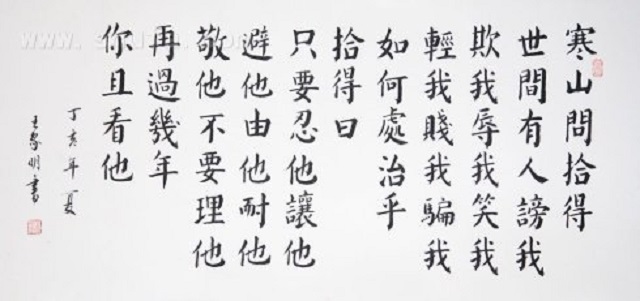 寒山問拾得
世間有人謗我
欺我辱我笑我
輕我賤我騙我
如何處治乎
拾得曰
只要忍他讓他
避他由他耐他
敬他不要理他
再過幾年
你且看他
丁亥年夏
明書